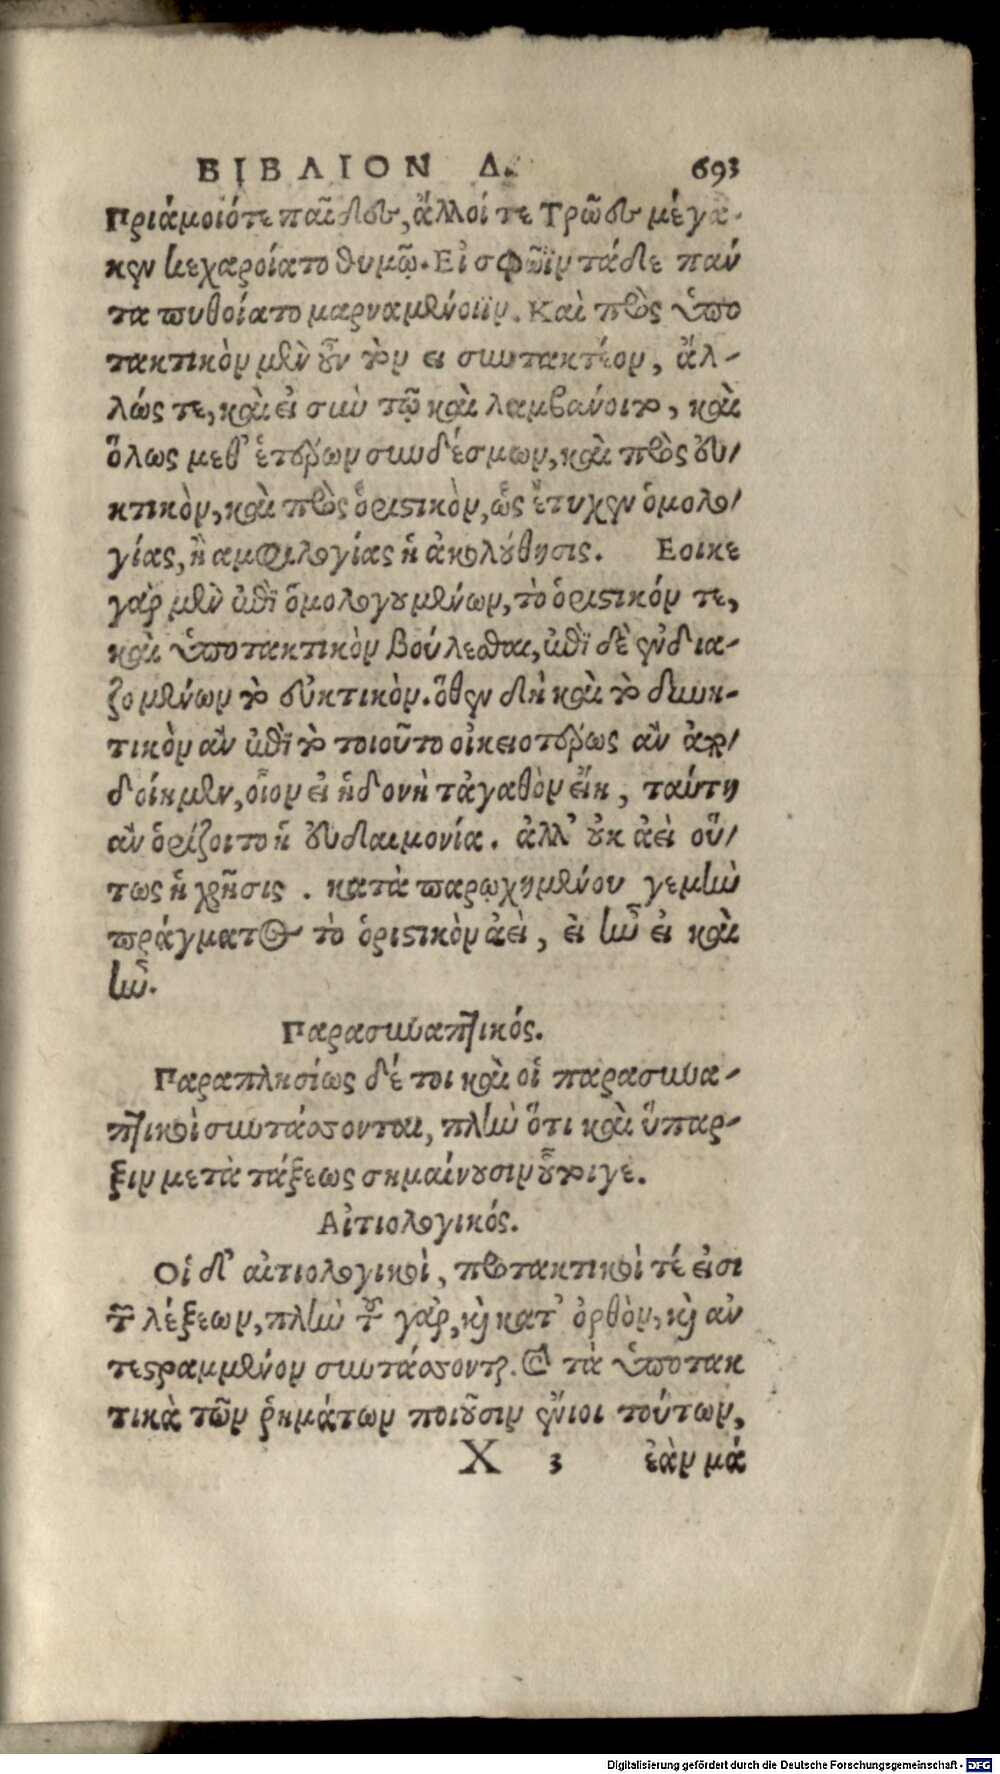 ΒΙΒΛΙΟΝ Δ. 693
Πριάμοιό τε παῖδες, ἄλλοί τε Τρῶες μέγα
κεν κεχαροίατο θυμῷ. Εἰ σφῶϊν τάδε πάν
τα πυθοίατο μαρναμένοιϊν. Καὶ πρὸς ὑπο
τακτικὸν μὲν οὖν τὸν ει συντακτέον, ἄλ-
λώς τε, καὶ εἰ σὺν τῷ καὶ λαμβάνοιτο, καὶ
ὅλως μεθ' ἑτέρων συνδέσμων, καὶ πρὸς εὐ/
κτικὸν, καὶ πρὸς ὁριστικὸν, ὡς ἔτυχεν ὁμολο/
γίας, ἢ αμφιλογίας ἡ ἀκολούθησις. Εοικε
γὰρ μὲν ἐπὶ ὁμολογουμένων, τὸ ὁριστικόν τε,
καὶ ὑποτακτικὸν βούλεσθαι, ἐπὶ δὲ ἐνδια-
ζομένων τὸ εὐκτικὸν. ὅθεν δὴ καὶ τὸ δυνη-
τικὸν ἂν ἐπὶ τὸ τοιοῦτο οἰκειοτέρως ἂν ἀπο/
δοίημεν, οἷον εἰ ἡδονὴ τἀγαθὸν εἴη, ταύτῃ
ἂν ὁρίζοιτο ἡ εὐδαιμονία. ἀλλ' οὐκ ἀεὶ οὕ/
τως ἡ χρῆσις. κατὰ παρῳχημένου γεμὴν
πράγματος τὸ ὁριστικὸν ἀεὶ, εἰ ἦν εἰ καὶ
ἦν.
Παρασυναπτικός.
Παραπλησίως δέ τοι καὶ οἱ παρασυνα-
πτικοὶ συντάσσονται, πλὴν ὅτι καὶ ὕπαρ-
ξιν μετὰ τάξεως σημαίνουσιν οὗτοιγε.
Αἰτιολογικός.
Οἱ δ' αἰτιολογικοὶ, προτακτικοὶ τέ εἰσι
τῶν λέξεων, πλὴν τοῦ γὰρ, καὶ κατ' ὀρθὸν, καὶ ἀν
τεστραμμένον συντάσσονται. Καὶ τὰ ὑποτακ
τικὰ τῶν ῥημάτων ποιοῦσιν ἔνιοι τούτων,
X 3 ἐὰν μά